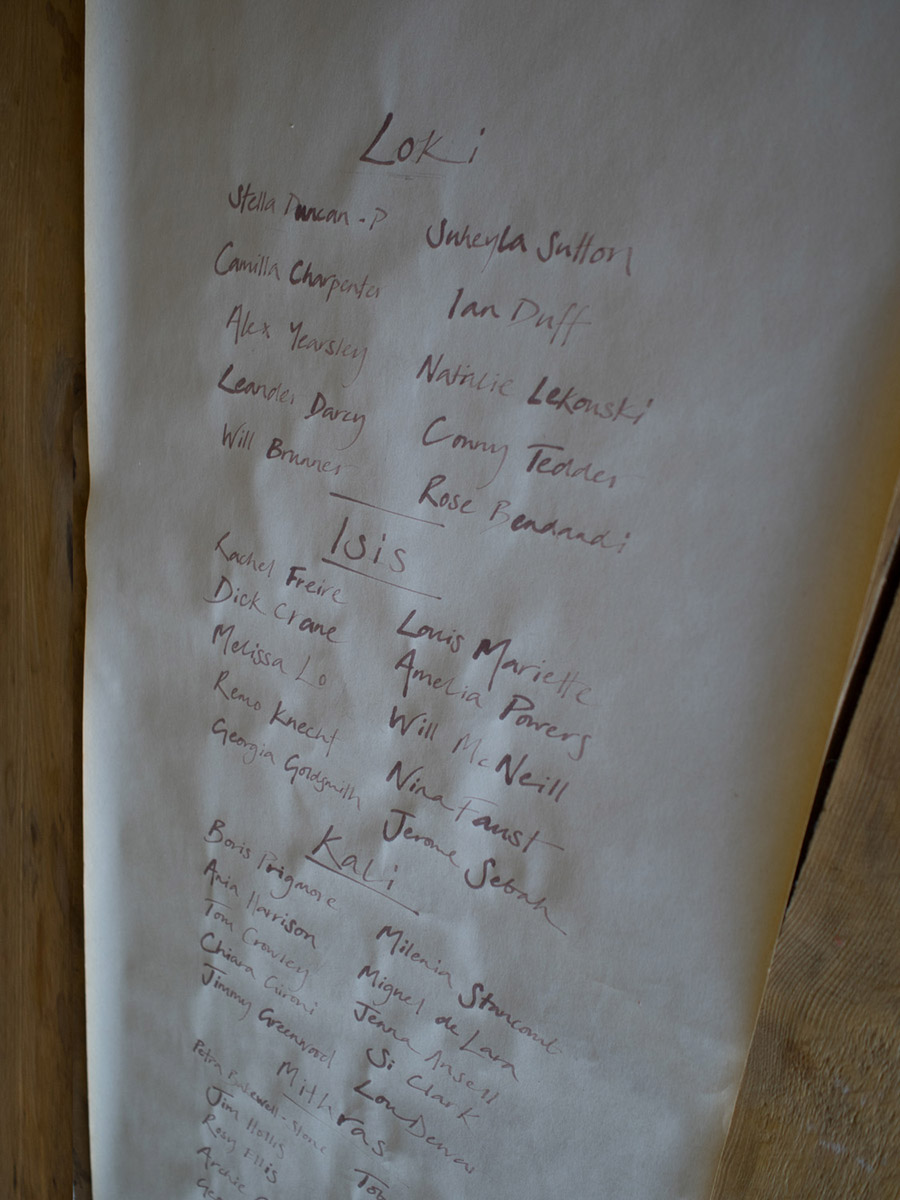 Loki
Stella Duncan - P
Camilla Charpentier
Alex Yearsley
Leander Darcy
Will Brunner
Suheyla Sutton
Ian Duff
Natalie Lekouski
Conny Tedder
Rose Bendandi
Isis
Rachel Freire
Dick Crane
Melissa Lo
Remo Knecht
Georgia Goldsmith
Louis Mariette
Amelia Powers
Will McNeill
Nina Faust
Jerome Sebah
Kali
Boris Prigmore
Ania Harrison
Tom Crowley
Chiara
Jimmy Greenwood
Milenia
Miguel de Lara
Jenna Ansell
Si Clark
Lou
Mithras
Petra
Jim Hollis
Rosy Ellis
Archie